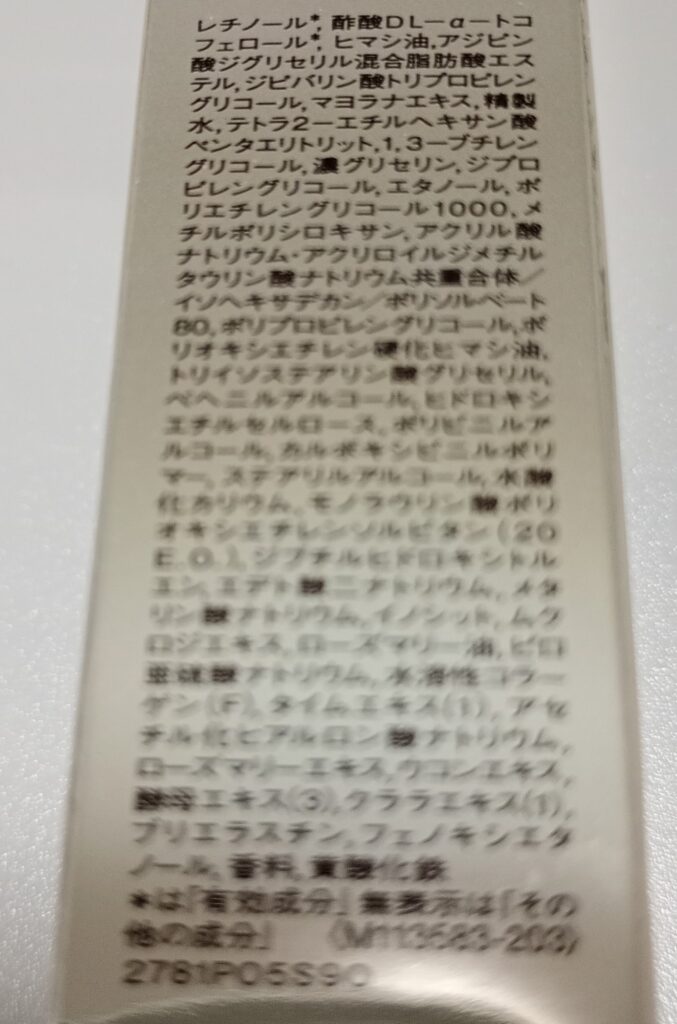 レチノール*, 酢酸DL−α−トコ
フェロール*, ヒマシ油,アジピン
酸ジグリセリル混合脂肪酸エス
テル,ジピバリン酸トリプロピレン
グリコール,マヨラナエキス,精製
水,テトラ2−エチルヘキサン酸
ペンタエリトリット,1,3−ブチレン
グリコール,濃グリセリン,ジプロ
ピレングリコール,エタノール,ポ
リエチレングリコール1000,メ
チルポリシロキサン,アクリル酸
ナトリウム・アクリロイルジメチル
タウリン酸ナトリウム共重合体/
イソヘキサデカン/ポリソルベート
80,ポリプロピレングリコール,ポ
リオキシエチレン硬化ヒマシ油,
トリイソステアリン酸グリセリル,
ベヘニルアルコール,ヒドロキシ
エチルセルロース,ポリビニルア
ルコール,カルボキシビニルポリ
マー,ステアリルアルコール,水酸
化カリウム,モノラウリン酸ポリ
オキシエチレンソルビタン(20
E.O.),ジブチルヒドロキシトル
エン,エデト酸二ナトリウム,メタ
リン酸ナトリウム,イノシット,ムク
ロジエキス,ローズマリー油,ピロ
亜硫酸ナトリウム,水溶性コラー
ゲン(F),タイムエキス(1),アセ
チル化ヒアルロン酸ナトリウム,
ローズマリーエキス,ウコンエキス,
酵母エキス(3),クララエキス(1),
プリエラスチン,フェノキシエタ
ノール,香料,黄酸化鉄
*は「有効成分」無表示は「その
他の成分」 〈M113583-203〉
2781P05S90